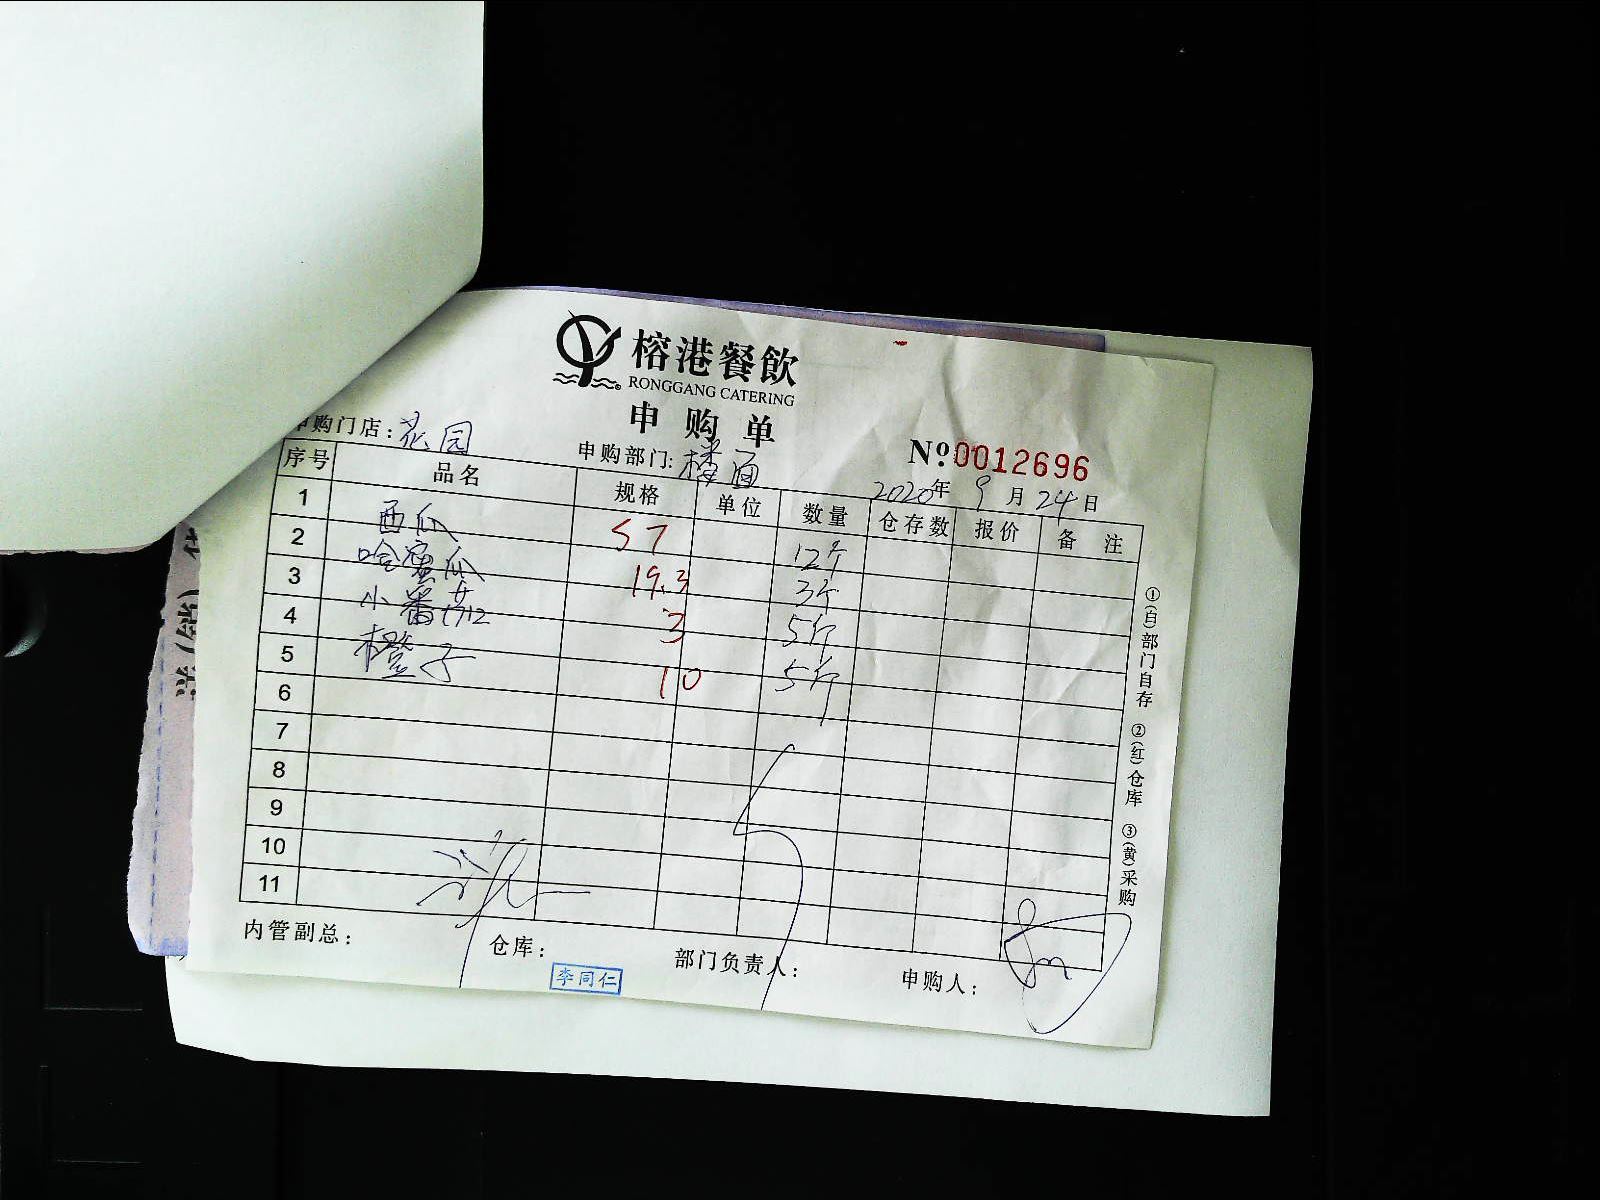 榕港餐飲
RONGGANG CATERING
申购单
申购门店：花园
申购部门：楼面
Nº 0012696
2020年 9月 24日
序号 品名 规格 单位 数量 仓存数 报价 备注
1 西瓜 57 12个
2 哈蜜瓜 19.3 3个
3 小番茄 3 5斤
4 橙子 10 5斤
5
6
7
8
9
10
11
①(白)部门自存 ②(红)仓库 ③(黄)采购
内管副总： 仓库： 部门负责人： 申购人：
李同仁